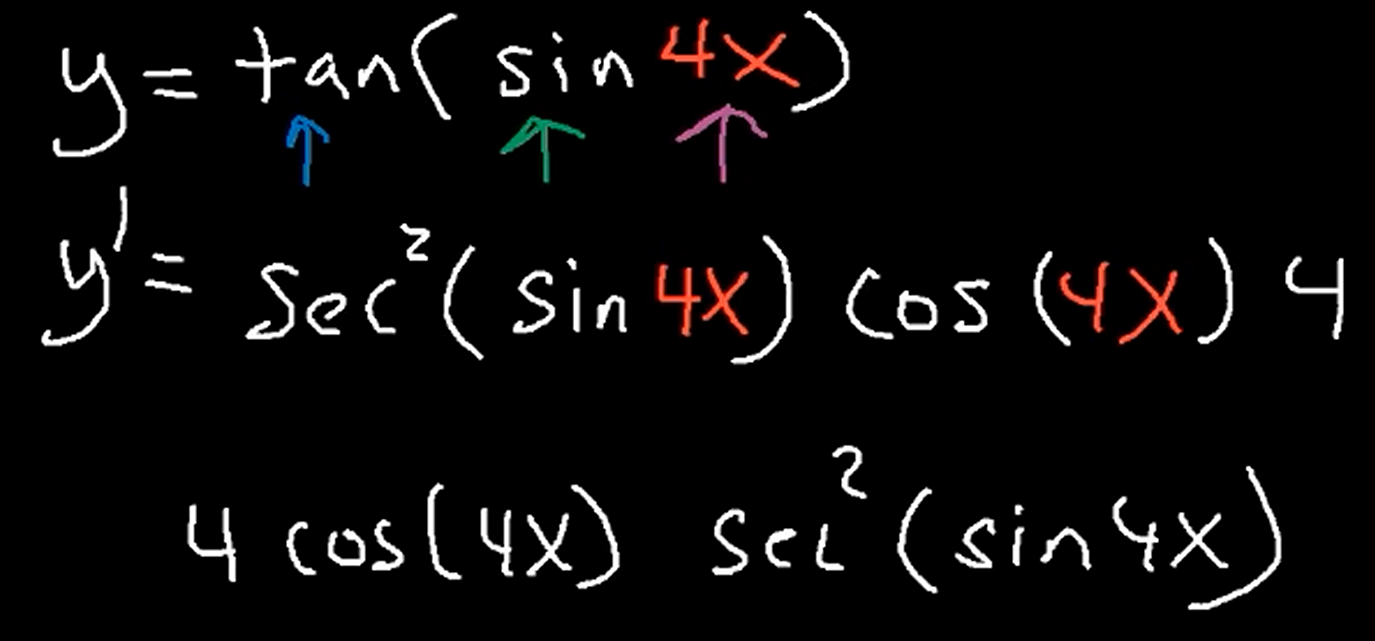 y = tan( sin 4x )
y' = Sec²( sin 4x ) cos (4x) 4
4 cos(4x) sec² (sin 4x)